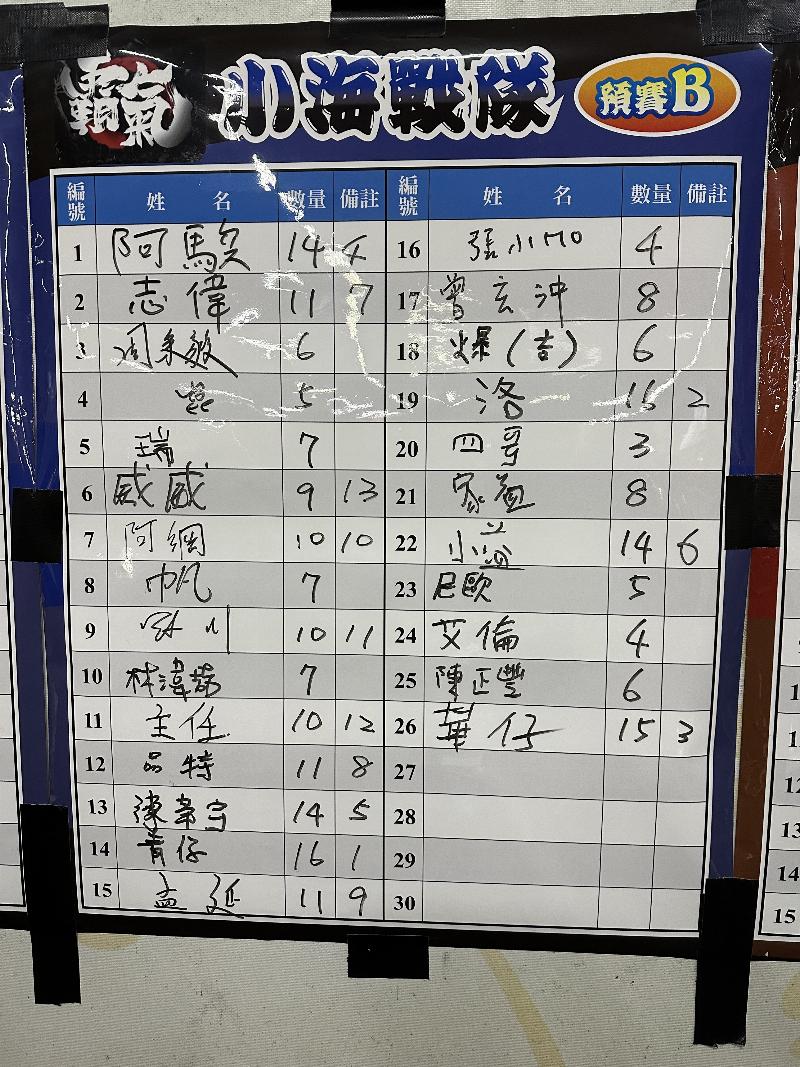 霸氣 小海戰隊 預賽B
編號 姓名 數量 備註
1 阿駿 14 4
2 志偉 11 7
3 周秉毅 6
4 5
5 瑞 7
6 威威 9 13
7 阿綱 10 10
8 帆 7
9 川 10 11
10 林湋 7
11 主任 10 12
12 品特 11 8
13 陳韋宇 14 5
14 青仔 16 1
15 孟延 11 9
編號 姓名 數量 備註
16 張小MO 4
17 曾玄沖 8
18 爆(吉) 6
19 洛 15 2
20 四哥 3
21 家 8
22 小益 14 6
23 尼歐 5
24 艾倫 4
25 陳正豐 6
26 華仔 15 3
27
28
29
30